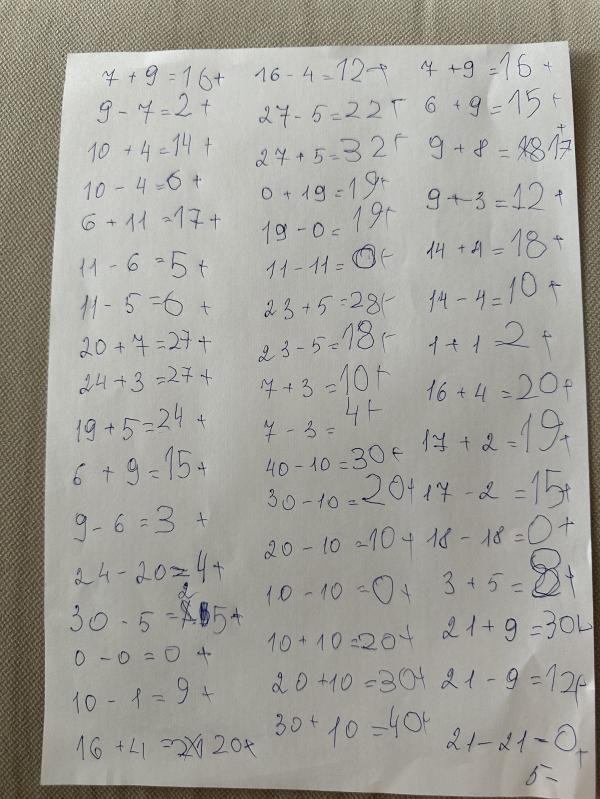 7 + 9 = 16 +
9 - 7 = 2 +
10 + 4 = 14 +
10 - 4 = 6 +
6 + 11 = 17 +
11 - 6 = 5 +
11 - 5 = 6 +
20 + 7 = 27 +
24 + 3 = 27 +
19 + 5 = 24 +
6 + 9 = 15 +
9 - 6 = 3 +
24 - 20 = 4 +
30 - 5 = 25 +
0 - 0 = 0 +
10 - 1 = 9 +
16 + 4 = 20 +
16 - 4 = 12 +
27 - 5 = 22 +
27 + 5 = 32 +
0 + 19 = 19 +
19 - 0 = 19 +
11 - 11 = 0 +
23 + 5 = 28 +
23 - 5 = 18 +
7 + 3 = 10 +
7 - 3 = 4 +
40 - 10 = 30 +
30 - 10 = 20 +
20 - 10 = 10 +
10 - 10 = 0 +
10 + 10 = 20 +
20 + 10 = 30 +
30 + 10 = 40 +
7 + 9 = 16 +
6 + 9 = 15 +
9 + 8 = 17 +
9 + 3 = 12 +
14 + 4 = 18 +
14 - 4 = 10 +
1 + 1 = 2 +
16 + 4 = 20 +
17 + 2 = 19 +
17 - 2 = 15 +
18 - 18 = 0 +
3 + 5 = 8 +
21 + 9 = 30 +
21 - 9 = 12 +
21 - 21 = 0 +
5-